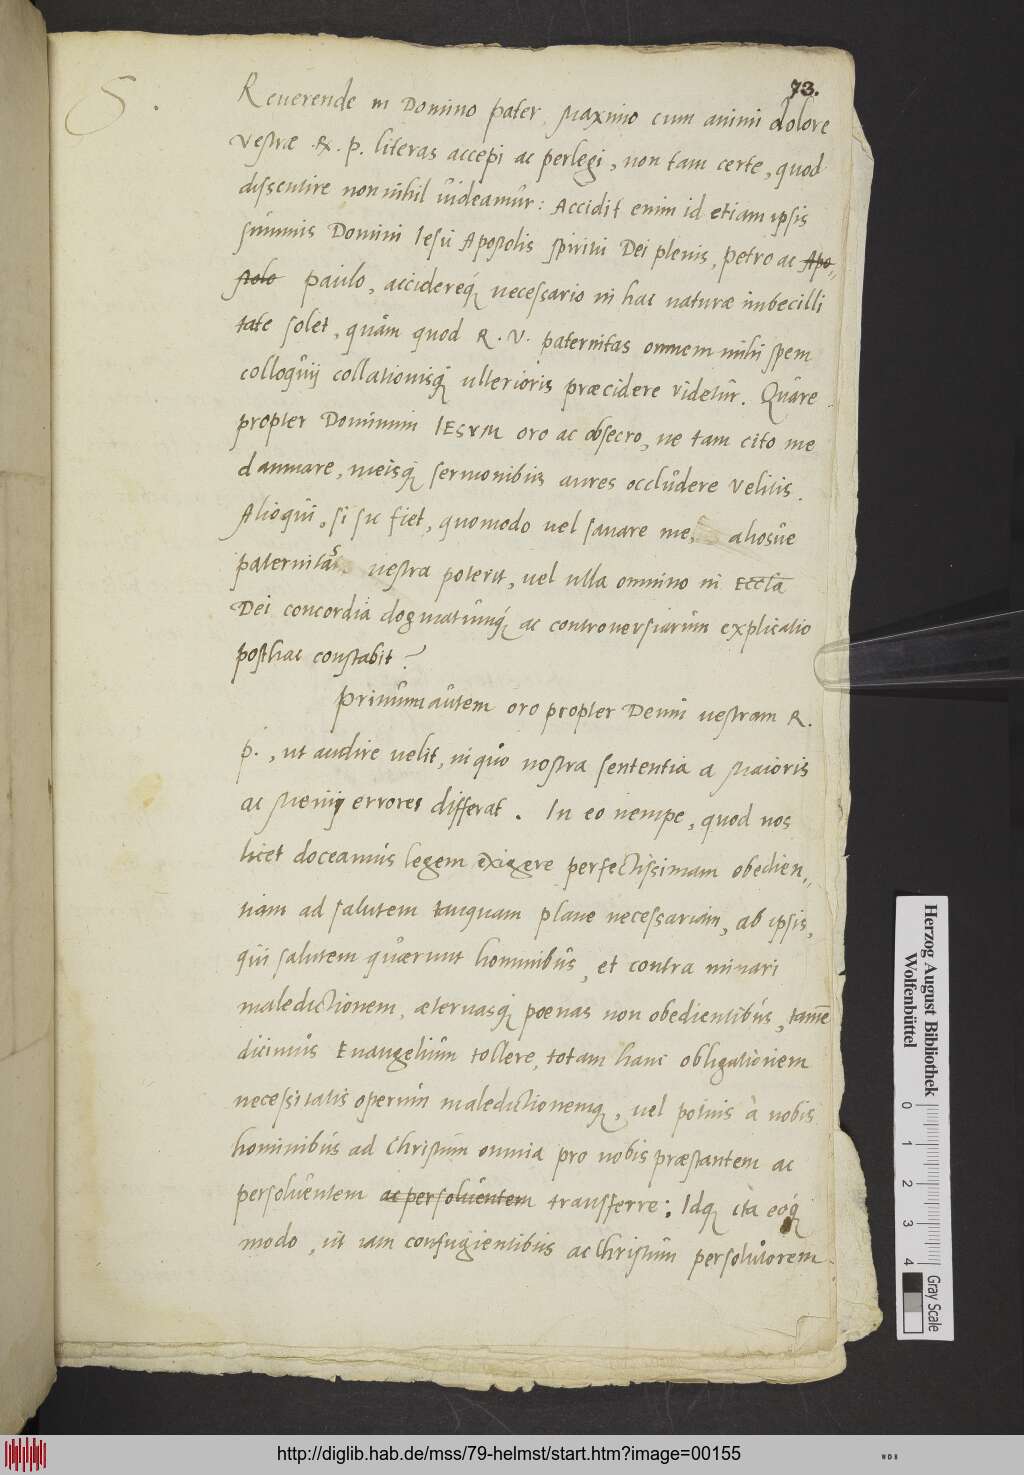 73.
S.
Reuerende in Domino pater, Maximo cum animi dolore
Vestræ .R. p. literas accepi ac perlegi, non tam certe, quod
dissentire non nihil uideamur: Accidit enim id etiam ipsis
summis Domini Iesu Apostolis spiritu Dei plenis, petro ac Apo-
stolo paulo, accidereq́; necessario in hac naturæ imbecilli
tate solet, quàm quod R. V. paternitas omnem mihi spem
colloquij collationisq́; ulterioris præcidere videtur. Quare
propter Dominum IESVM oro ac obsecro, ne tam cito me
damnare, meisq́; sermonibus aures occludere velitis.
Alioqui, si sic fiet, quomodo uel sanare me, aliosue
paternitas uestra poterit, uel ulla omnino in Eccľia
Dei concordia dogmatumq́; ac controuersiarum explicatio
posthac constabit?
Primum autem oro propter Deum uestram R.
p., ut audire uelit, in quo nostra sententia a Maioris
ac Menij errores differat. In eo nempe, quod nos
licet doceamus legem exigere perfectissimam obedien-
tiam ad salutem tanquam plane necessariam, ab ipsis,
qui salutem quærunt hominibus, et contra minari
maledictionem, æternasq́; poenas non obedientibus, tamē
dicimus Euangelium tollere, totam hanc obligationem
necessitatis operum maledictionemq́;, uel potius à nobis
hominibus ad Christum omnia pro nobis præstantem ac
persoluentem ac persoluentem transferre: Idq́; ita eoq́;
modo, ut iam confugientibus ac Christum persolutorem
Herzog August Bibliothek
Wolfenbüttel
0 1 2 3 4
Gray Scale
http://diglib.hab.de/mss/79-helmst/start.htm?image=00155